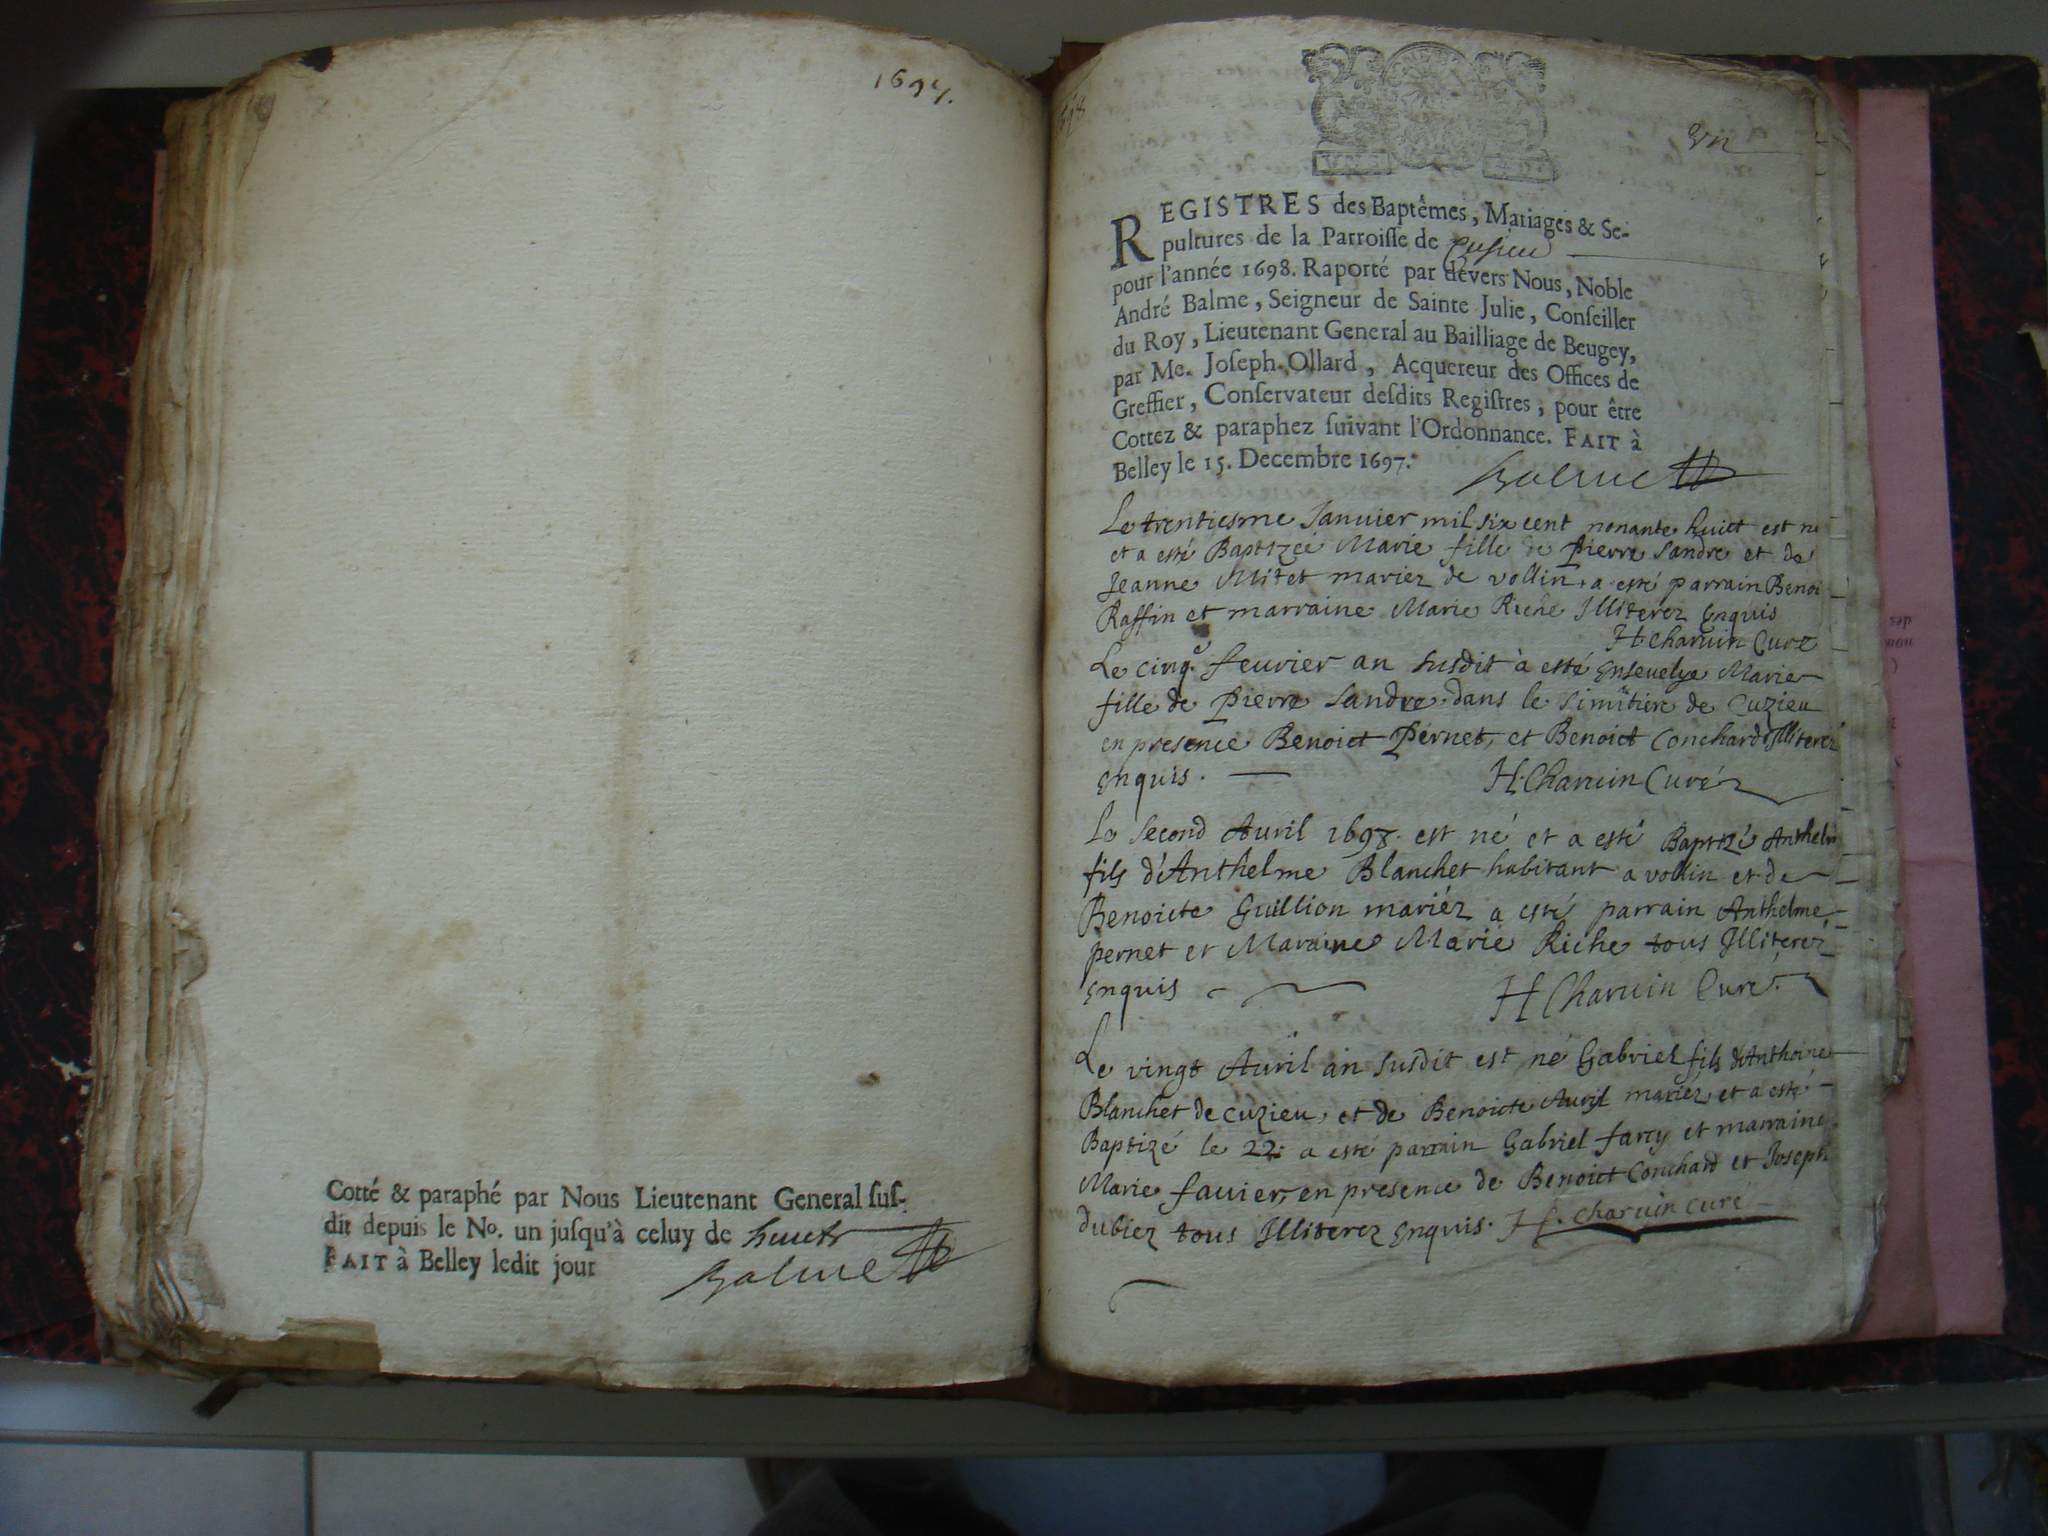 1697.
Cotté & paraphé par Nous Lieutenant General suf-
dit depuis le No. un jusqu'à celuy de huict
FAIT à Belley ledit jour
Balme
1698
un
REGISTRES des Baptêmes, Mariages & Se-
pultures de la Parroisse de Cusieu
pour l'année 1698. Raporté par devers Nous, Noble
André Balme, Seigneur de Sainte Julie, Conseiller
du Roy, Lieutenant General au Bailliage de Beugey,
par Me. Joseph Ollard, Acquereur des Offices de
Greffier, Conservateur desdits Registres, pour être
Cottez & paraphez suivant l'Ordonnance. FAIT à
Belley le 15. Decembre 1697.
Balme
Le trentiesme Januier mil six cent nonante huict est ne
et a esté Baptizée Marie fille de Pierre Sandre et de
Jeanne Mitet mariez de vollin, a esté parrain Benoi
Raffin et marraine Marie Riche Illiterez Enquis
H. Charuin Curé
Le cinq.e feurier an susdit à esté Enseuelye Marie
fille de Pierre Sandre dans le simitiere de Cuzieu
en presence Benoict Pernet, et Benoict Conchard Illiterez
Enquis. H. Charuin Curé
Le second Auril 1698. est né et a esté Baptizé Anthelm
fils d'Anthelme Blanchet habitant a vollin et de
Benoicte Guillion mariéz a esté parrain Anthelme
Pernet et Maraine Marie Riche tous Illiterez
Enquis H Charuin Curé.
Le vingt Auril an susdit est né Gabriel fils d'Anthoine
Blanchet de Cuzieu, et de Benoicte Auril mariéz, et a esté
Baptizé le 22. a esté parrain Gabriel farcy et marraine
Marie fauier, en presence de Benoict Conchard et Joseph
dubiez tous Illiterez Enquis. H. Charuin curé